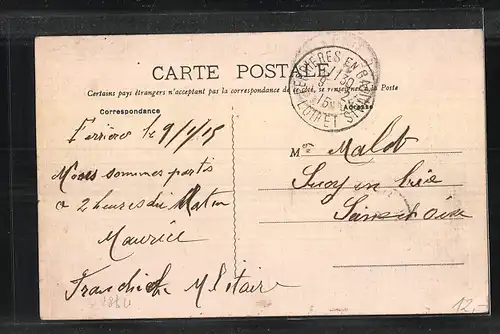 CARTE POSTALE
Certains pays étrangers n'acceptant pas la correspondance de ce côté, se renseigner à la Poste
FERRIERES EN GATINAIS
LOIRET
Correspondance
Adresse
Ferrières le 9/1/15
Nous sommes partis
a 2 heures du Matin
Maurice
Franchise Militaire
M Malot
Sucy en brie
Seine et oise
12,-